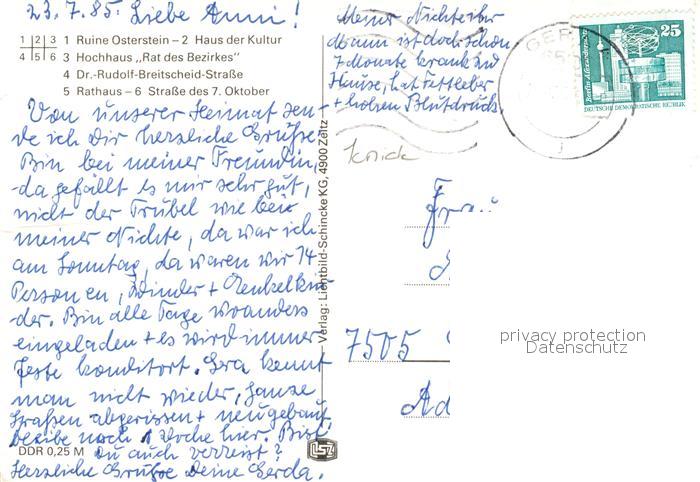 23.7.85. Liebe Anni!
1 2 3 1 Ruine Osterstein – 2 Haus der Kultur
4 5 6 3 Hochhaus „Rat des Bezirkes"
4 Dr.-Rudolf-Breitscheid-Straße
5 Rathaus – 6 Straße des 7. Oktober
Von unserer Heimat sen-
de ich Dir herzliche Grüße.
Bin bei meiner Freundin,
da gefällt es mir sehr gut,
nicht der Trubel wie bei
meiner Nichte, da war ich
am Sonntag, da waren wir 14
Personen, Kinder + Enkelkin-
der. Bin alle Tage woanders
eingeladen + es wird immer
feste konditort. Gera kennt
man nicht wieder, ganze
Straßen abgerissen + neugebaut
bleibe noch 1 Woche hier. Bist
Du auch verreist?
Herzliche Grüße Deine Gerda.
DDR 0,25 M
Verlag: Lichtbild-Schincke KG, 4900 Zeitz
LSZ
Meiner Nichte ihr
Mann ist doch schon
7 Monate krank zu
Hause, hat Fettleber
+ hohen Blutdruck
Knick
GER
25
Berlin, Alexanderplatz
DEUTSCHE DEMOKRATISCHE REPUBLIK
Frau
7505
privacy protection
Datenschutz